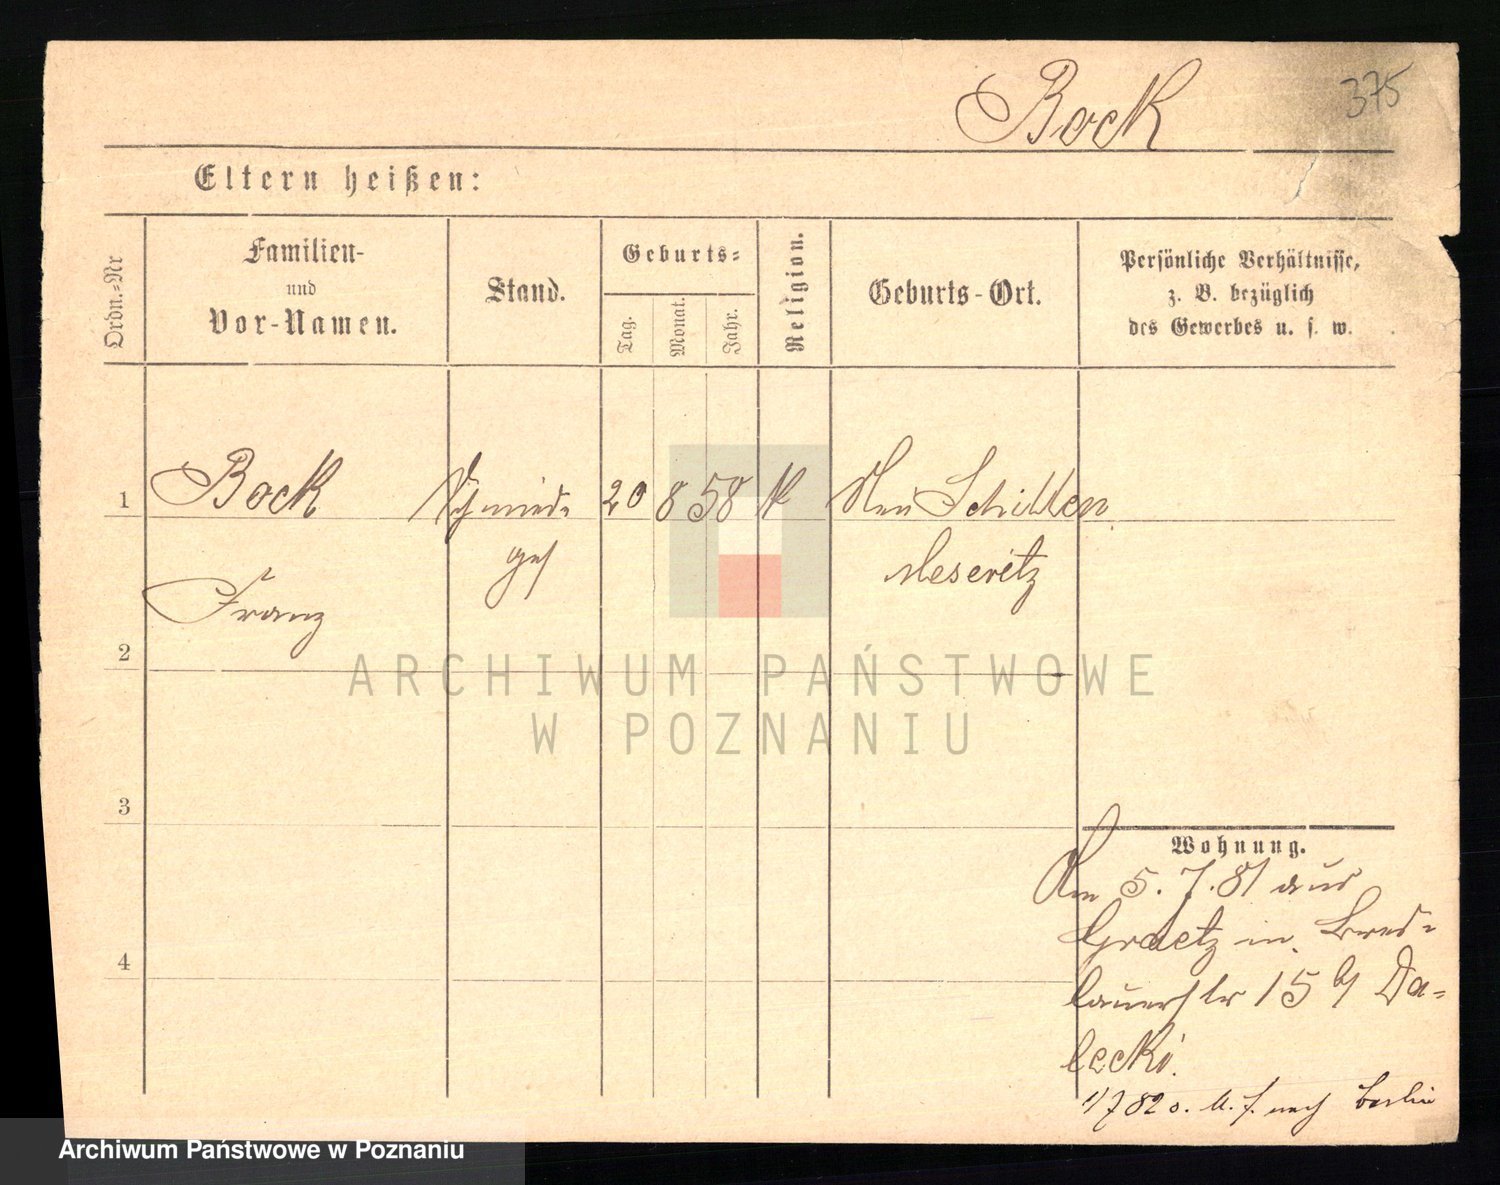 Bock
375
Eltern heißen:
Ordn.-Nr
Familien-
und
Vor-Namen.
Stand.
Geburts-
Tag.
Monat.
Jahr.
Religion.
Geburts-Ort.
Persönliche Verhältnisse,
z. B. bezüglich
des Gewerbes u. s. w.
1 Bock Schmied- 20 8 58 K Neu Schilln
ges Meseritz
Franz
2
ARCHIWUM PAŃSTWOWE
W POZNANIU
3
Wohnung.
Am 5. 7. 81 aus
Graetz in Bres-
4
lauerstr 15 b/ Da-
lecki.
1/7 82 o. A. f. nach Berlin
Archiwum Państwowe w Poznaniu